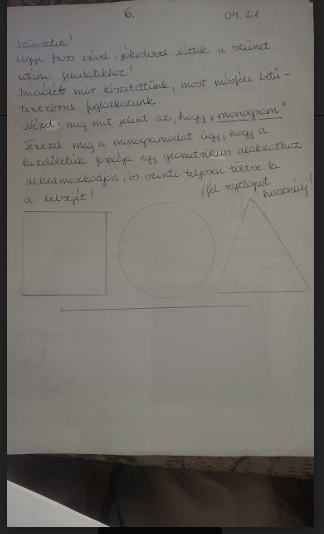 6. 04.21
Sziasztok!
Ugye friss erővel, jókedvvel láttok a szünet
utáni feladatokhoz!
Iniciálét már készítettünk, most másféle betű-
tervezéssel foglalkozunk
Nézd meg mit jelent az, hogy "monogram"
Tervezd meg a monogramodat úgy, hogy a
kezdőbetűk formája egy geometrikus alakzathoz
alkalmazkodjon, és szinte teljesen töltse ki
a belsejét! (fél rajzlapot
használj!